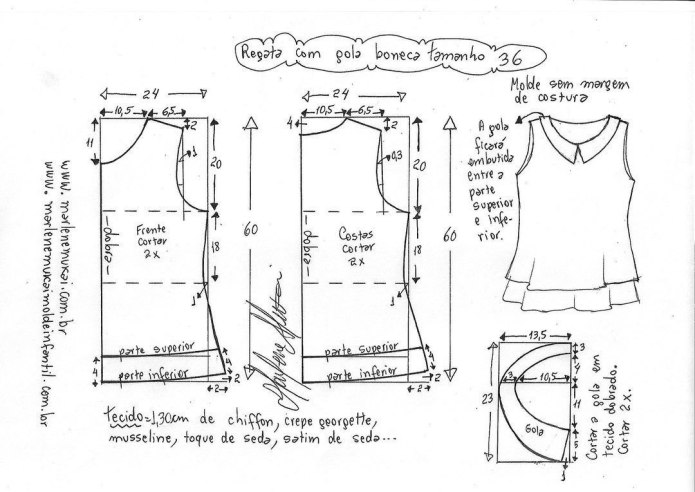 Regata com gola boneca tamanho 36
24
10,5
6,5
2
11
1
20
Frente
cortar
2x
dobra
60
18
1
parte superior
parte inferior
4
4
2
2
24
10,5
6,5
4
2
0,3
20
Costas
cortar
2x
dobra
60
18
1
parte superior
parte inferior
4
4
2
2
Molde sem margem
de costura
A gola
ficará
embutida
entre a
parte
superior
e infe-
rior.
13,5
3
4
3
10,5
23
11
Gola
5
1
Cortar a gola em
tecido dobrado.
Cortar 2x.
tecido=1,30cm de chiffon, crepe georgette,
musseline, toque de seda, satim de seda...
www.marlenemukai.com.br
www.marlenemukaimoldeinfantil.com.br
Marlene Mukai